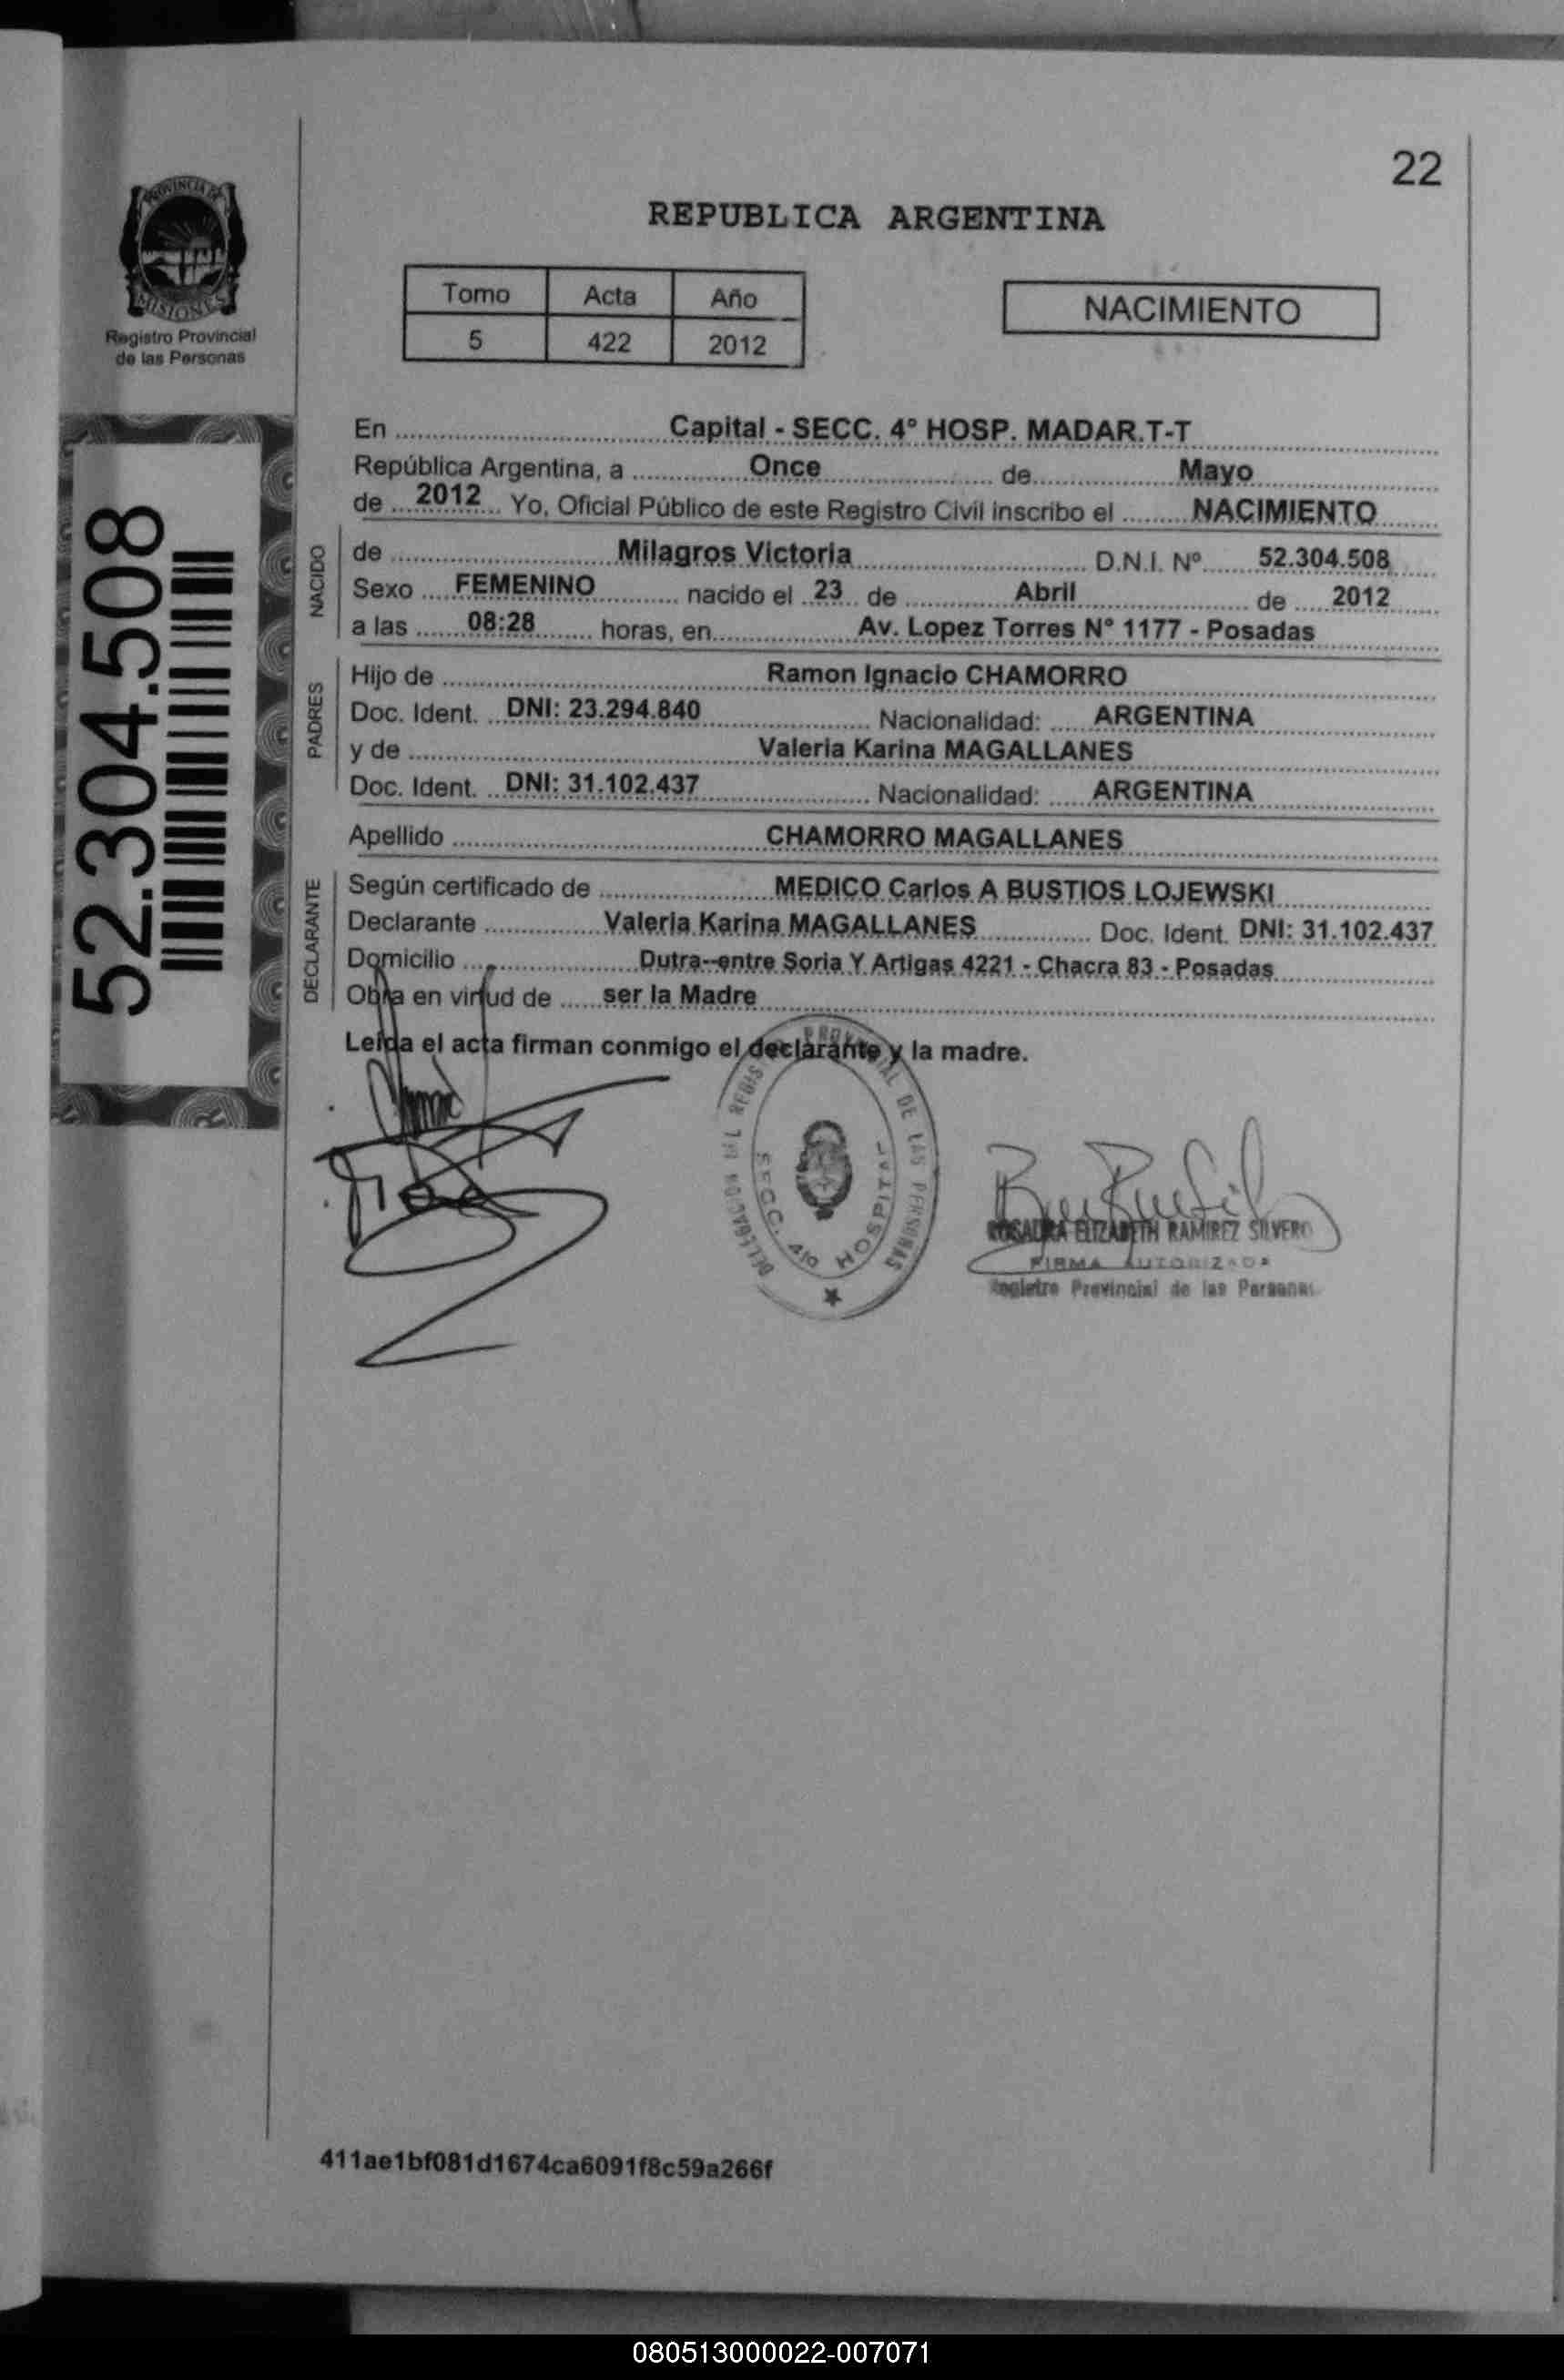 22
PROVINCIA DE
MISIONES
Registro Provincial
de las Personas
REPUBLICA ARGENTINA
Tomo Acta Año
5 422 2012
NACIMIENTO
52.304.508
En Capital - SECC. 4° HOSP. MADAR.T-T
República Argentina, a Once de Mayo
de 2012 Yo, Oficial Público de este Registro Civil inscribo el NACIMIENTO
NACIDO
de Milagros Victoria D.N.I. Nº 52.304.508
Sexo FEMENINO nacido el 23 de Abril de 2012
a las 08:28 horas, en Av. Lopez Torres N° 1177 - Posadas
PADRES
Hijo de Ramon Ignacio CHAMORRO
Doc. Ident. DNI: 23.294.840 Nacionalidad: ARGENTINA
y de Valeria Karina MAGALLANES
Doc. Ident. DNI: 31.102.437 Nacionalidad: ARGENTINA
Apellido CHAMORRO MAGALLANES
DECLARANTE
Según certificado de MEDICO Carlos A BUSTIOS LOJEWSKI
Declarante Valeria Karina MAGALLANES Doc. Ident. DNI: 31.102.437
Domicilio Dutra--entre Soria Y Artigas 4221 - Chacra 83 - Posadas
Obra en virtud de ser la Madre
Leída el acta firman conmigo el declarante y la madre.
DE LAS PERSONAS
SECC. 4ta HOSPITAL
ROSAURA ELIZABETH RAMIREZ SILVERO
FIRMA AUTORIZADA
Registro Provincial de las Personas
411ae1bf081d1674ca6091f8c59a266f
080513000022-007071